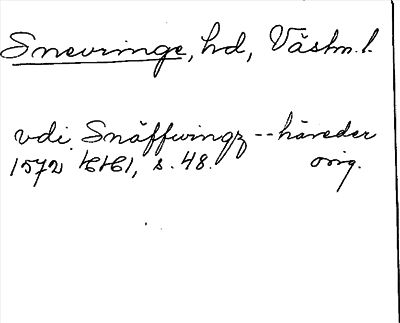 Snevringe, hd, Västm. l.
vdi Snäffwingz -- häreder
1572 HH1, s. 48. orig.